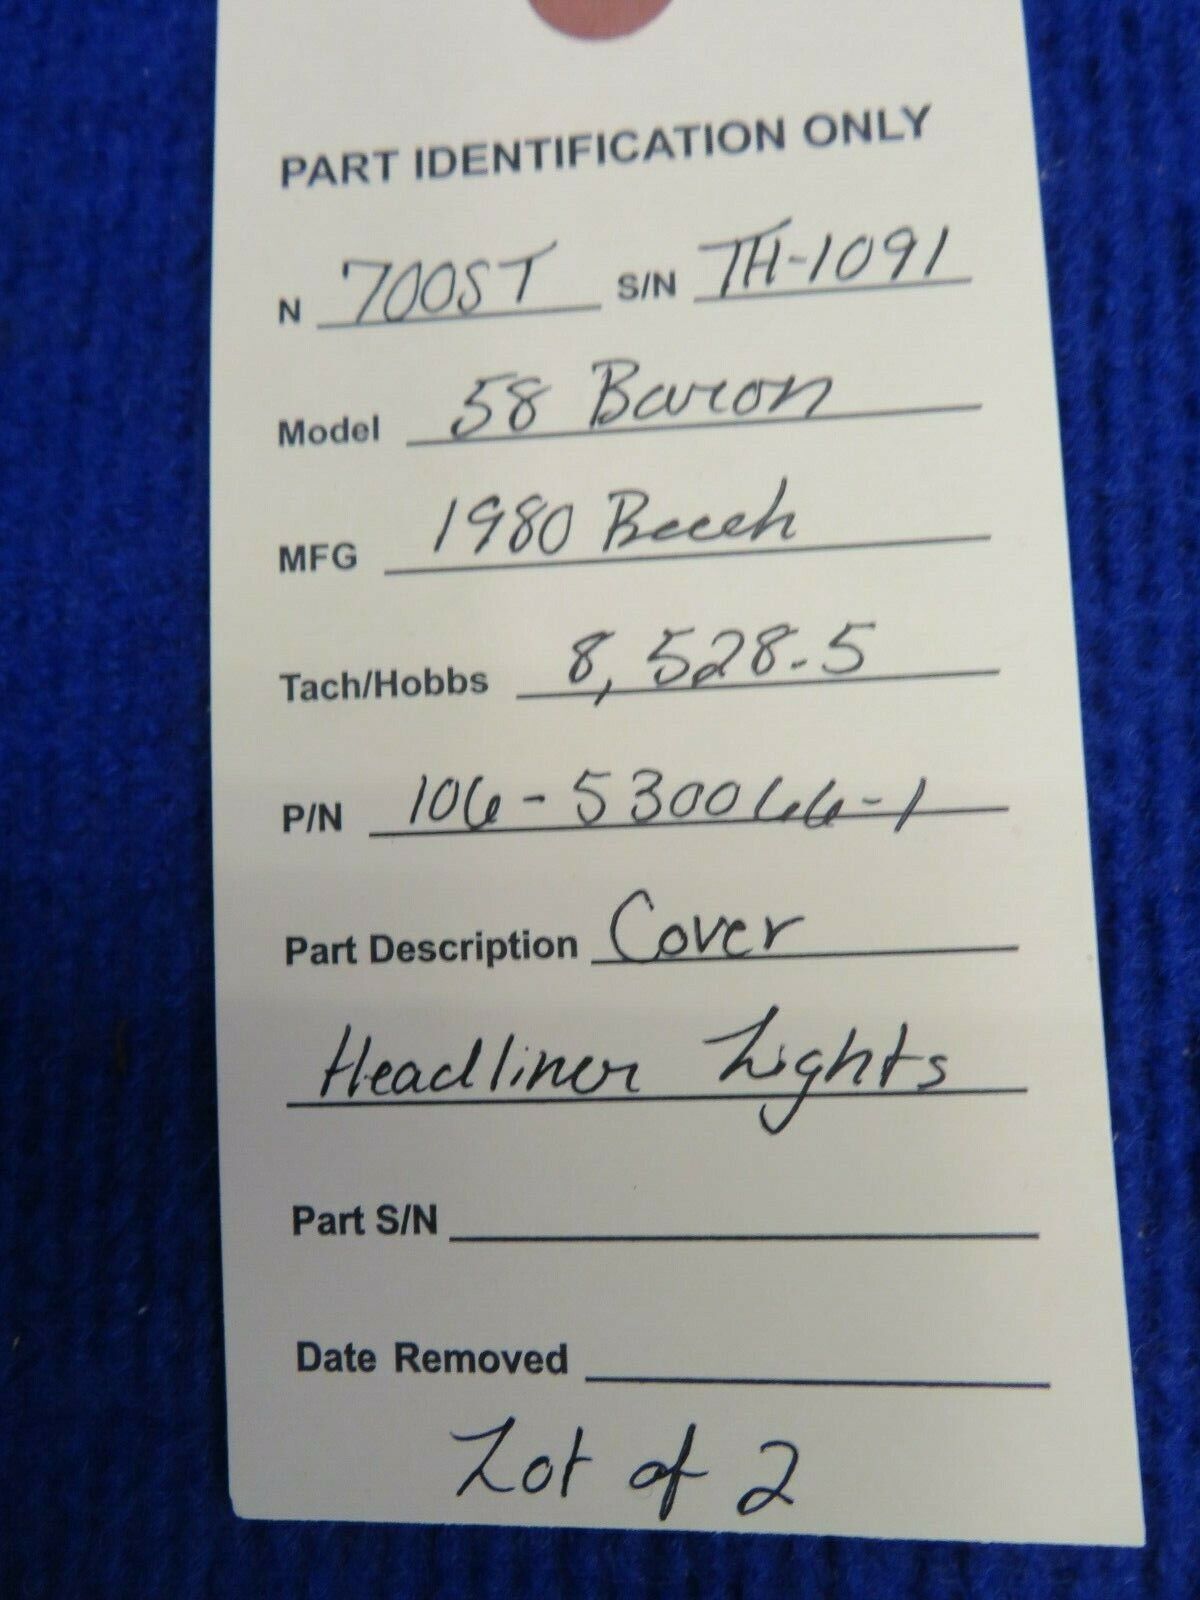 PART IDENTIFICATION ONLY
N 700ST S/N TH-1091
Model 58 Baron
MFG 1980 Beech
Tach/Hobbs 8,528.5
P/N 106-530066-1
Part Description Cover
Headliner Lights
Part S/N
Date Removed
Lot of 2